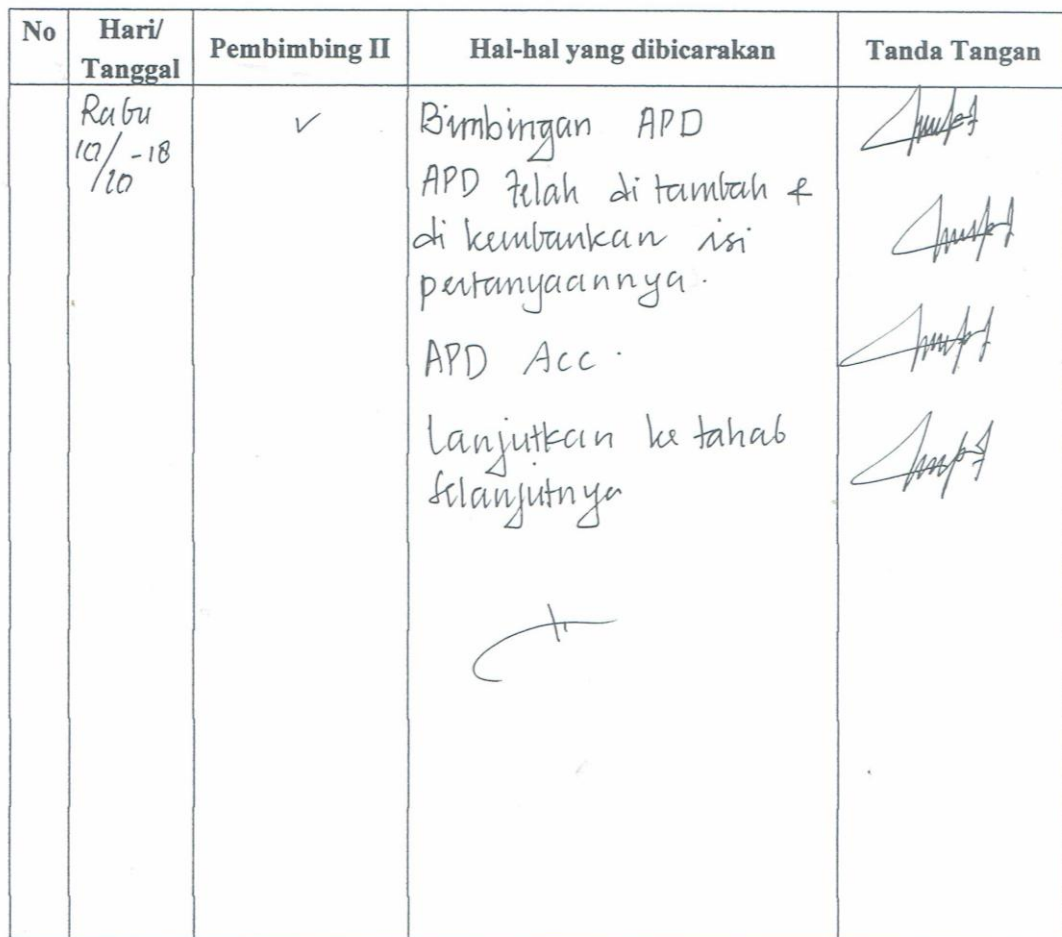 No
Hari/
Tanggal
Pembimbing II
Hal-hal yang dibicarakan
Tanda Tangan
Rabu
10/10 -18
✓
Bimbingan APD
APD telah di tambah &
di kembankan isi
pertanyaannya.
APD Acc.
Lanjutkan ke tahab
selanjutnya